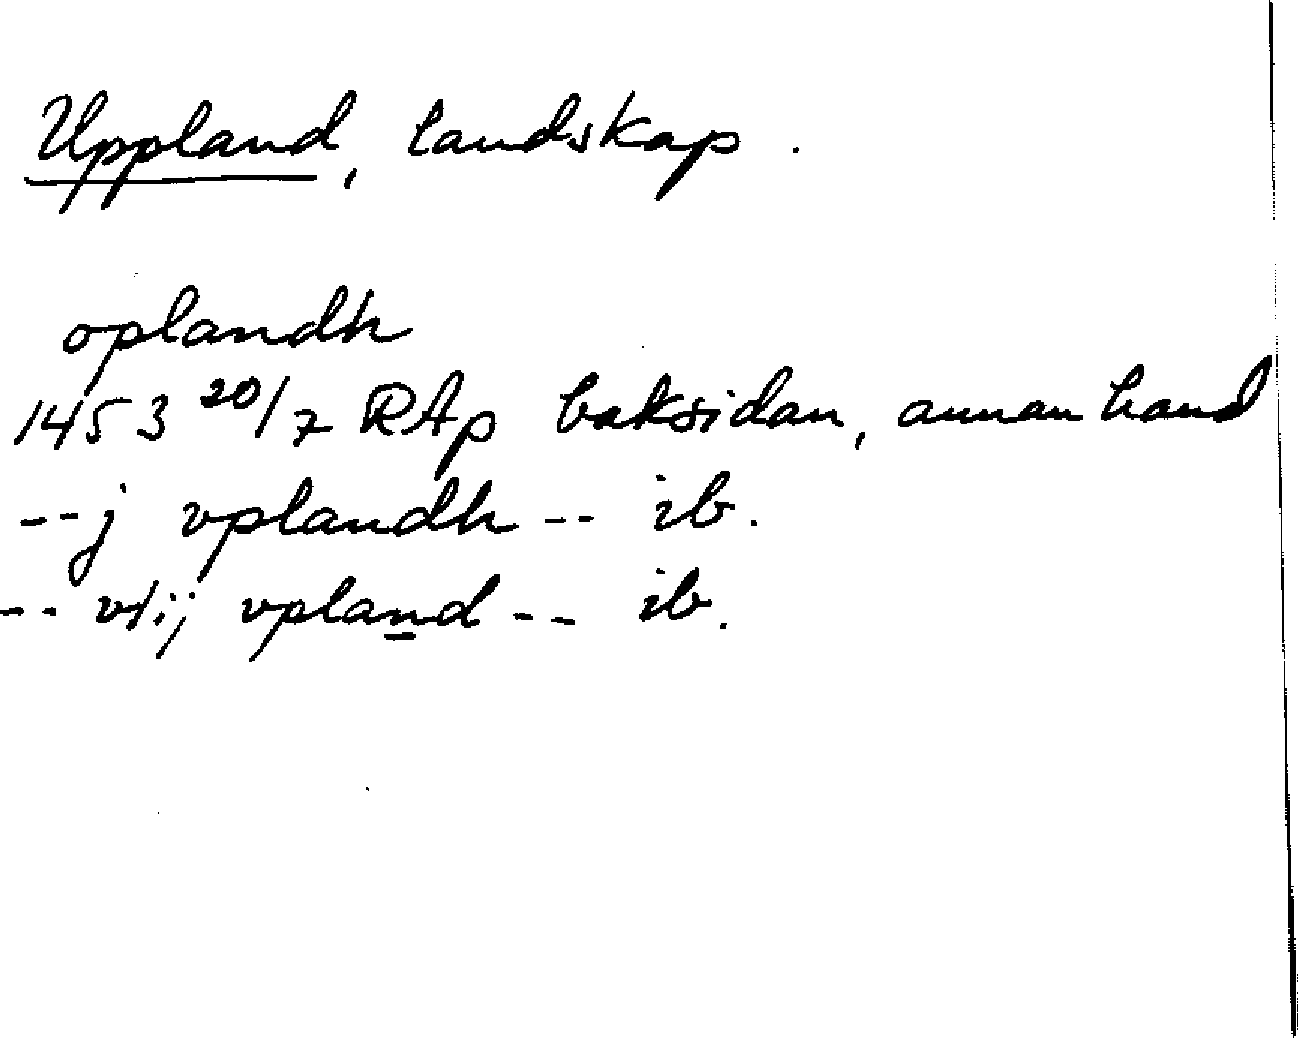 Uppland, landskap.
oplandh
1453 20/7 RAp baksidan, annan hand
--j vplandh-- ib.
-- vtij vpland -- ib.